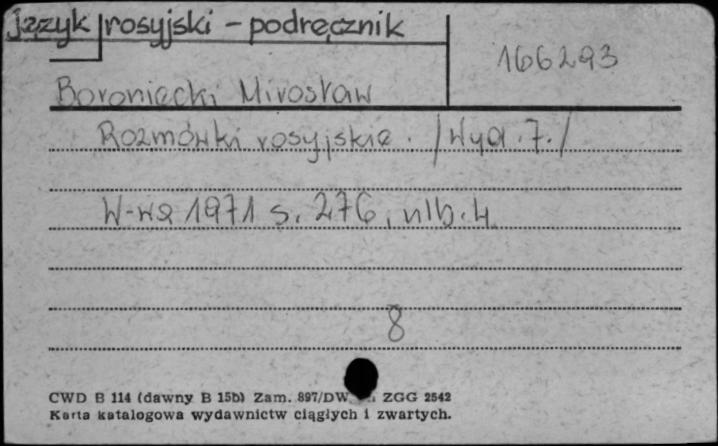 język rosyjski - podręcznik
166293
Boroniecki Mirosław
Rozmówki rosyjskie. /Wyd. 7./
W-wa 1971 s. 276, nlb. 4
8
CWD B 114 (dawny B 15b) Zam. 897/DW ZGG 2542
Karta katalogowa wydawnictw ciągłych i zwartych.